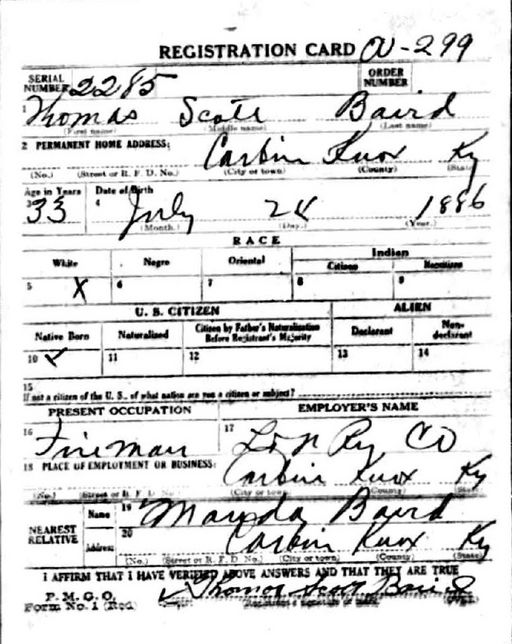 REGISTRATION CARD OV-299
SERIAL NUMBER 2285 ORDER NUMBER
1 Thomas Scott Baird
(First name) (Middle name) (Last name)
2 PERMANENT HOME ADDRESS:
Corbin Knox Ky
(No.) (Street or R. F. D. No.) (City or town) (County) (State)
Age in Years Date of Birth
3 33 4 July 24 1886
(Month.) (Day.) (Year.)
RACE
White Negro Oriental Indian
Citizen Noncitizen
5 X 6 7 8 9
U. S. CITIZEN ALIEN
Native Born Naturalized Citizen by Father's Naturalization Before Registrant's Majority Declarant Non-declarant
10 ✓ 11 12 13 14
15
If not a citizen of the U. S., of what nation are you a citizen or subject?
PRESENT OCCUPATION EMPLOYER'S NAME
16 Fireman 17 L & N Ry Co
18 PLACE OF EMPLOYMENT OR BUSINESS:
Corbin Knox Ky
(No.) (Street or R. F. D. No.) (City or town) (County) (State)
NEAREST RELATIVE
Name 19 Baird
Address 20 Corbin Knox Ky
(No.) (Street or R. F. D. No.) (City or town) (County) (State)
I AFFIRM THAT I HAVE VERIFIED ABOVE ANSWERS AND THAT THEY ARE TRUE
P. M. G. O.
Form No. 1 (Red) Thomas Scott Baird